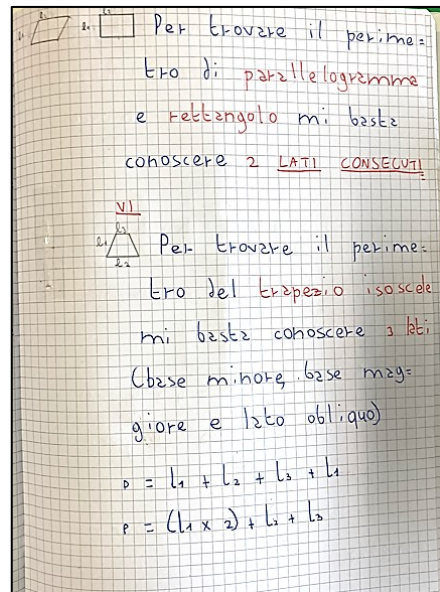 l₂
l₁
l₂
l₁
Per trovare il perime=
tro di parallelogramma
e rettangolo mi basta
conoscere 2 LATI CONSECUTI
VI
l₃
l₁
l₂
Per trovare il perime=
tro del trapezio isoscele
mi basta conoscere 3 lati
(base minore, base mag=
giore e lato obliquo)
P = l₁ + l₂ + l₃ + l₁
P = (l₁ x 2) + l₂ + l₃